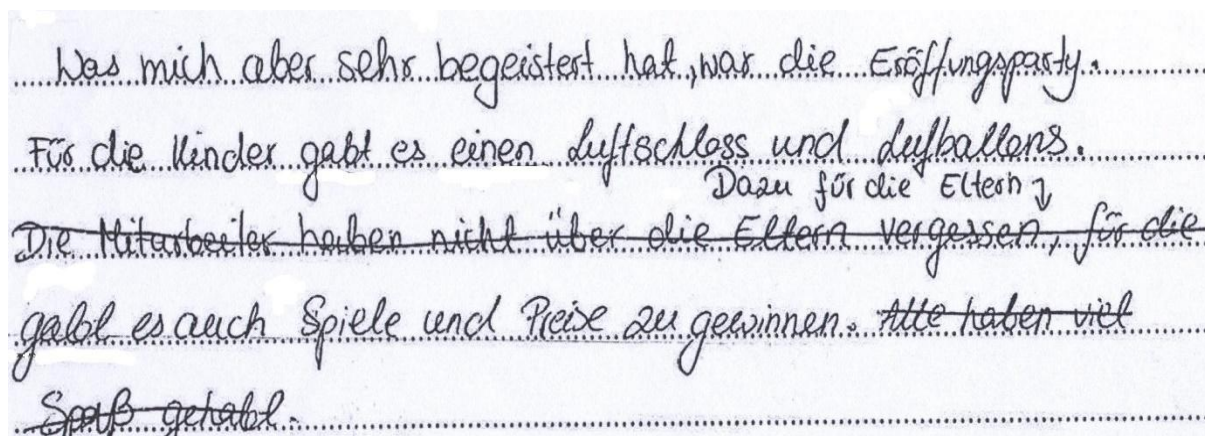 Was mich aber sehr begeistert hat, war die Eröffungsparty.
Für die Kinder gabt es einen Luftschloss und Lufballons.
Dazu für die Eltern
Die Mitarbeiter haben nicht über die Eltern vergessen, für die
gabt es auch Spiele und Preise zu gewinnen. Alle haben viel
Spaß gehabt.